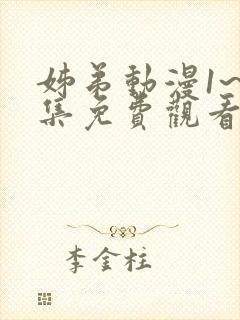 姊弟動漫1~
集免費觀看
李金柱